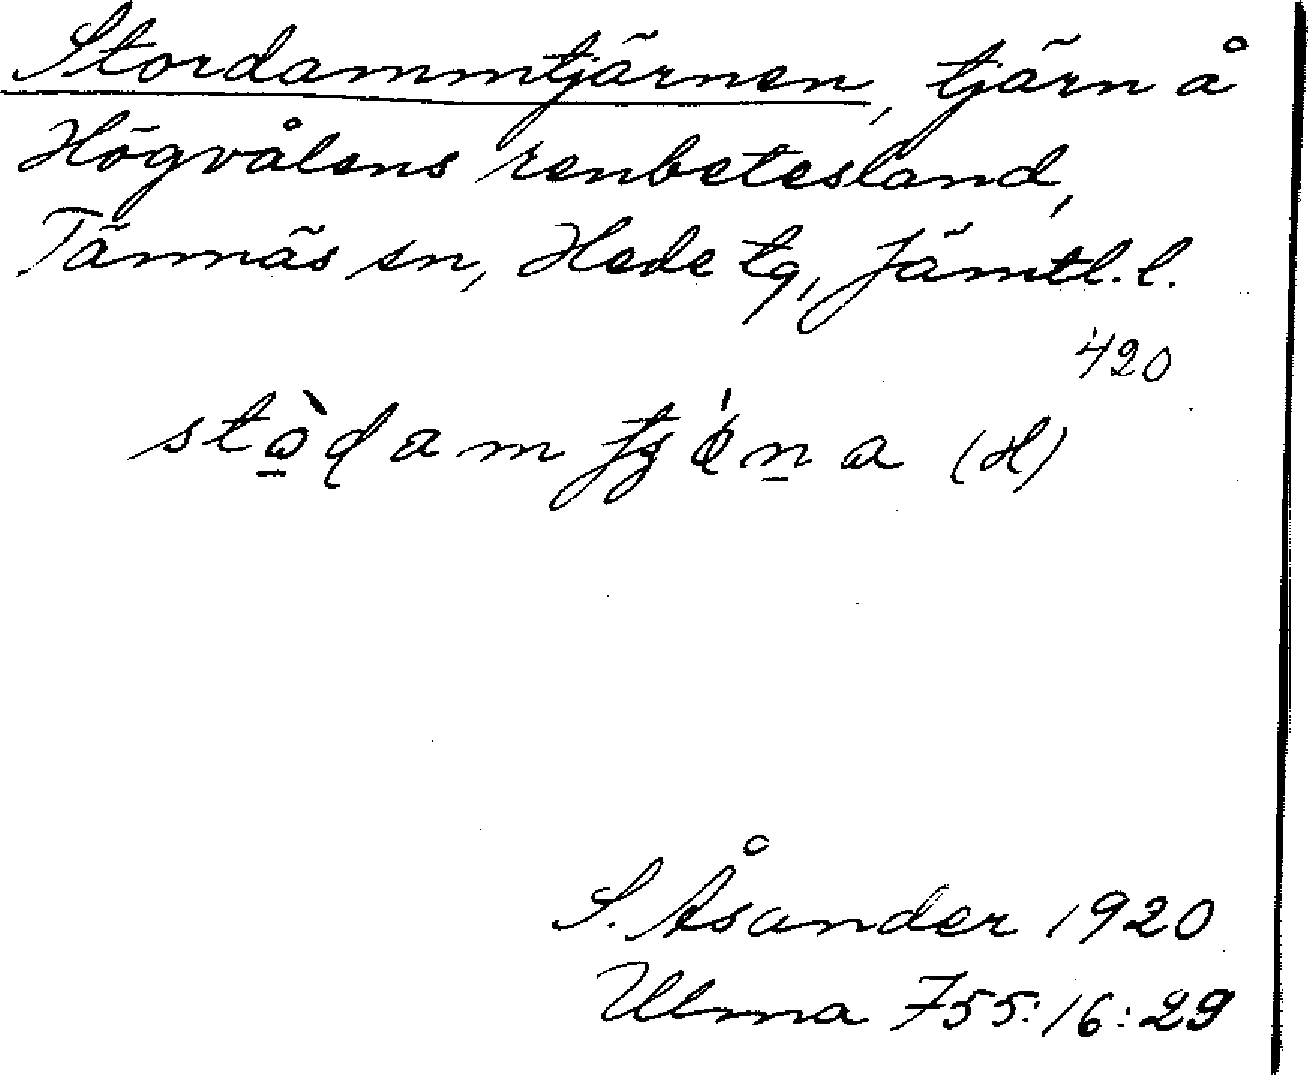 Stordammtjärnen, tjärn å
Högvålens renbetesland,
Tännäs sn, Hede tg, Jämtl. l.
420
(H)
S. Åsander 1920
Ulma 755:16:29